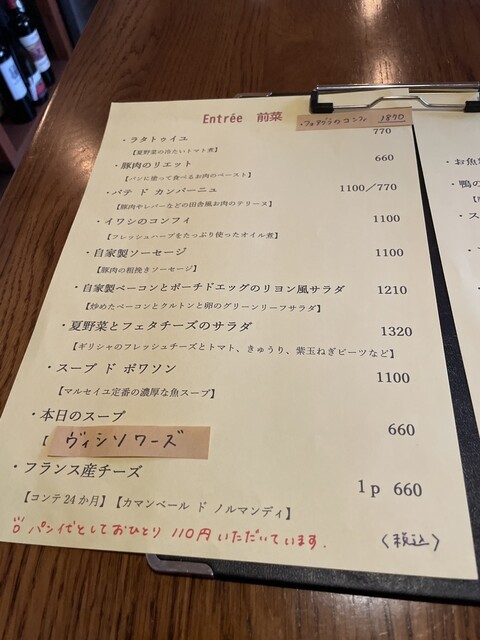 Entrée 前菜
・フォアグラのコンフィ 1870
・ラタトゥイユ 770
【夏野菜の冷たいトマト煮】
・豚肉のリエット 660
【パンに塗って食べるお肉のペースト】
・パテ ド カンパーニュ 1100／770
【豚肉やレバーなどの田舎風お肉のテリーヌ】
・イワシのコンフィ 1100
【フレッシュハーブをたっぷり使ったオイル煮】
・自家製ソーセージ 1100
【豚肉の粗挽きソーセージ】
・自家製ベーコンとポーチドエッグのリヨン風サラダ 1210
【炒めたベーコンとクルトンと卵のグリーンリーフサラダ】
・夏野菜とフェタチーズのサラダ 1320
【ギリシャのフレッシュチーズとトマト、きゅうり、紫玉ねぎビーツなど】
・スープ ド ポワソン 1100
【マルセイユ定番の濃厚な魚スープ】
・本日のスープ 660
【 ヴィシソワーズ
・フランス産チーズ 1p 660
【コンテ24か月】【カマンベール ド ノルマンディ】
パン代としておひとり 110円いただいています。
〈税込〉
・お魚
・鴨の
・ス